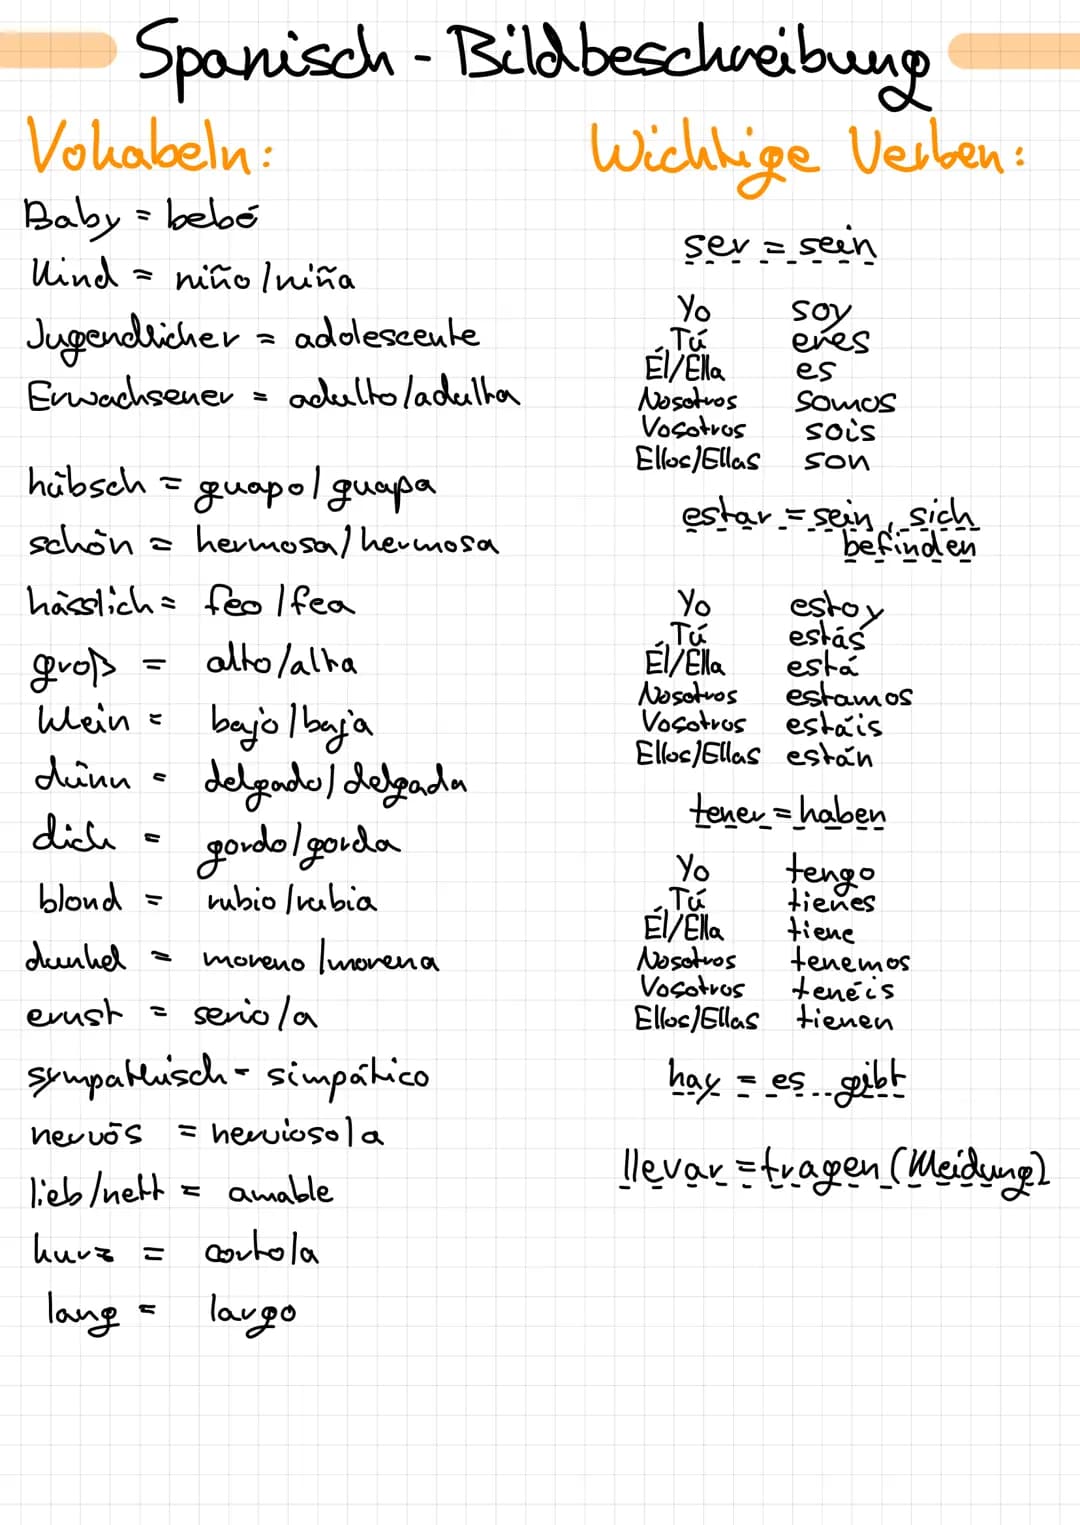 Spanisch - Bildbeschreibung
Vokabeln:
Baby = bebé
Kind = niño/niña
Jugendlicher = adolescente
Erwachsener = adulto/adulta
hübsch = guapo/guapa
schön = hermosa/hermosa
hässlich = feo/fea
groß = alto/alta
klein = bajo/baja
dünn = delgado/delgada
dick = gordo/gorda
blond = rubio/rubia
dunkel = moreno/morena
ernst = serio/a
sympathisch - simpático
nervös = nervioso/a
lieb/nett = amable
kurz = corto/a
lang = largo
Wichtige Verben:
ser = sein
Yo soy
Tú eres
Él/Ella es
Nosotros somos
Vosotros sois
Ellos/Ellas son
estar = sein, sich
befinden
Yo estoy
Tú estás
Él/Ella está
Nosotros estamos
Vosotros estáis
Ellos/Ellas están
tener = haben
Yo tengo
Tú tienes
Él/Ella tiene
Nosotros tenemos
Vosotros tenéis
Ellos/Ellas tienen
hay = es gibt
llevar = tragen (Kleidung)